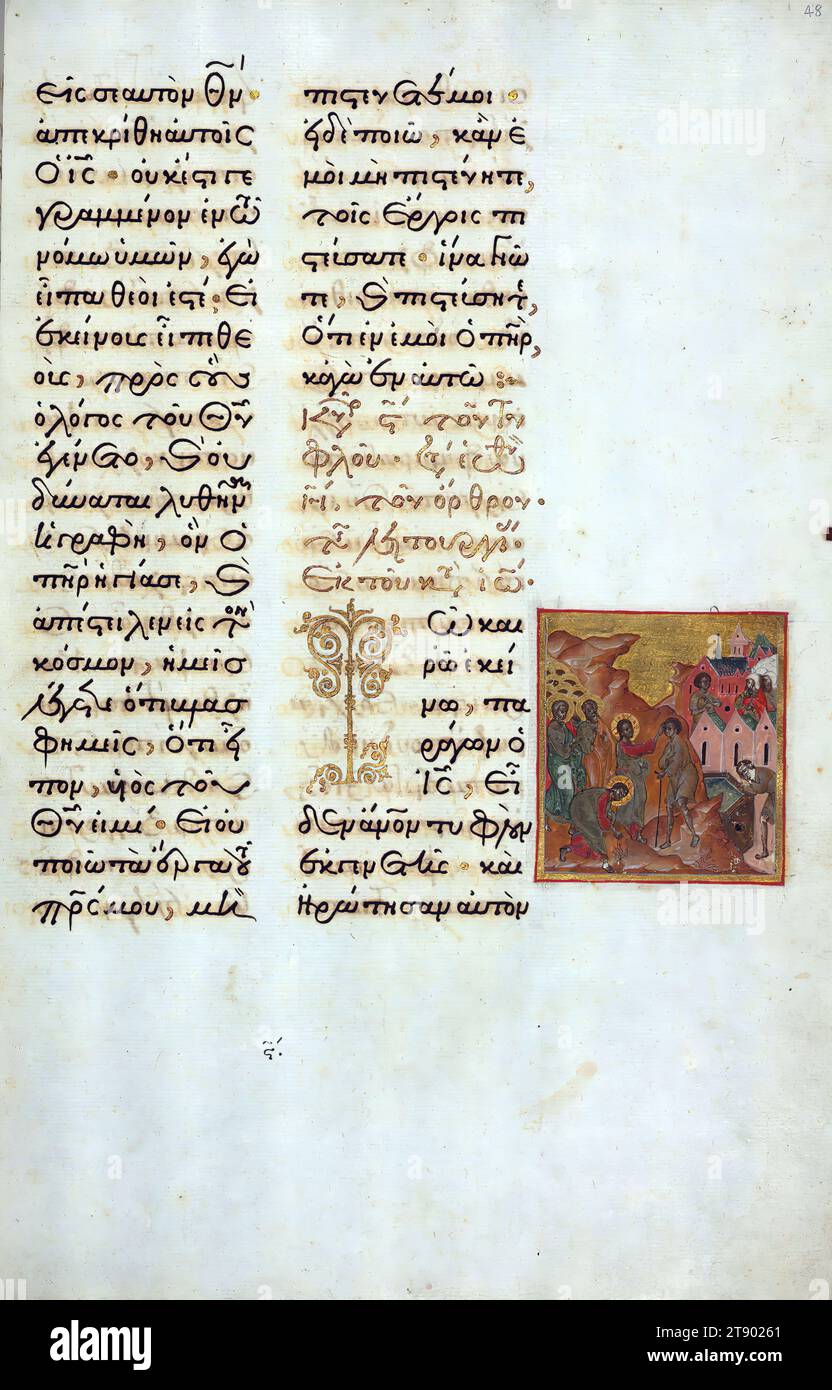 48
εἰς σεαυτὸν Θν·
ἀπεκρίθη αὐτοῖς
Ὁ ΙC· οὐκ ἔστι γε
γραμμένον ἐν τῶ
νόμω ὑμῶν, ἐγὼ
εἶπα θεοί ἐστέ· Εἰ
ἐκείνους εἶπε θε
οὺς, πρὸς οὓς
ὁ λόγος τοῦ Θυ
ἐγένετο, καὶ οὐ
δύναται λυθῆναι
ἡ γραφὴ, ὃν Ὁ
πηρ ἡγίασε, καὶ
ἀπέστειλεν εἰς τὸν
κόσμον, ὑμεῖς
λέγετε ὅτι βλασ
φημεῖς, ὅτι εἶ
πον, υἱὸς τοῦ
Θυ εἰμι· Εἰ οὐ
ποιῶ τὰ ἔργα τοῦ
πρς μου, μὴ
πιστεύετέ μοι·
εἰ δὲ ποιῶ, κἂν ἐ
μοὶ μὴ πιστεύητε,
τοῖς ἔργοις πι
στεύσατε· ἵνα γνῶ
τε, καὶ πιστεύσητε,
Ὅτι ἐν ἐμοὶ ὁ πηρ,
κἀγὼ ἐν αὐτῶ :
τοῦ Τυ
φλοῦ·
τὸν ὄρθρον·
Ἐκ τοῦ κατὰ Ἰω·
Τῶ και
ρῶ ἐκεί
νω, πα
ράγων ὁ
ΙC, εἶ
δεν ἄνον τυφλὸν
ἐκ γενετῆς· καὶ
ἠρώτησαν αὐτὸν
ϛ·
alamy
alamy
Image ID: 2T90261
www.alamy.com